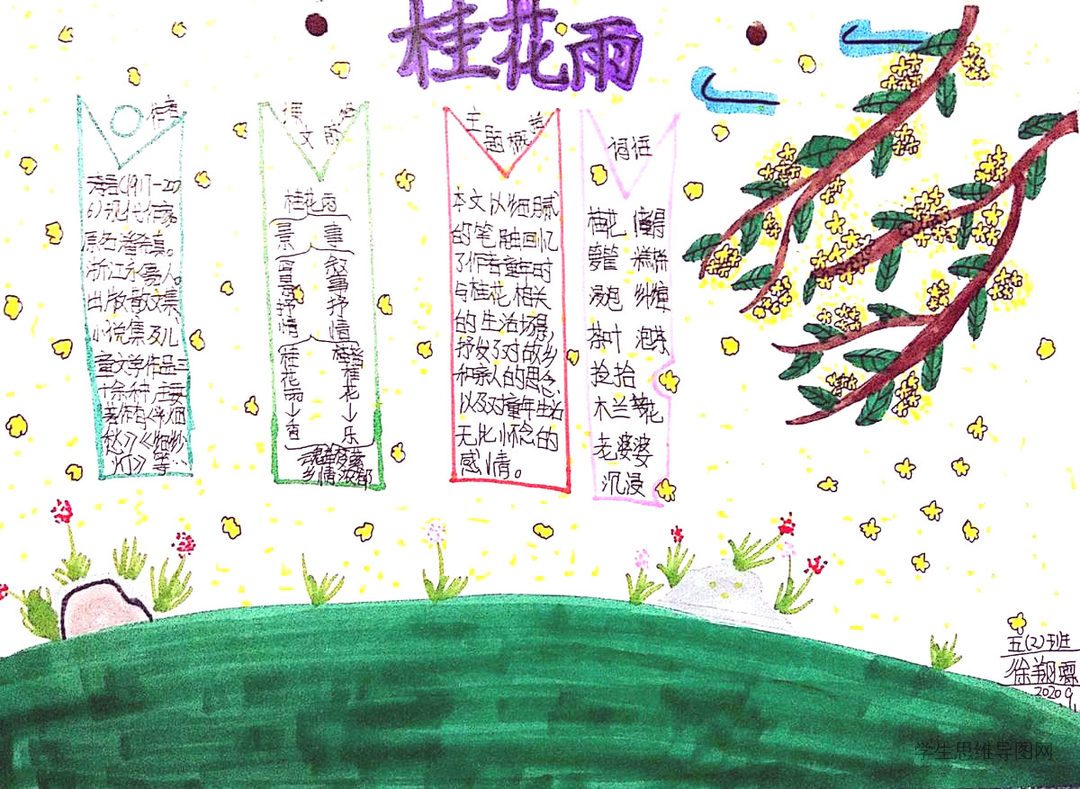 桂花雨
作者
琦君(1917-20
06)现代作家。
原名潘希真。
浙江永嘉人。
出版散文集,
小说集及儿
童文学作品三
十余种,主要
著作有《烟
愁》《细纱
灯》等…
课文
桂花雨
景 事
叙事抒情
桂花雨→香
桂花→乐
思乡情浓郁
主题概括
本文以细腻
的笔触回忆
了作者童年时
与桂花相关
的生活场景,
抒发了对故乡
和亲人的思念,
以及对童年生活
无比怀念的
感情。
词语
桂花 懂得
糕饼
浸泡 纠缠
茶叶 泡茶
捡拾
木兰花
老婆婆
沉浸
五(2)班
徐翔霖
2020.9.
学生思维导图网